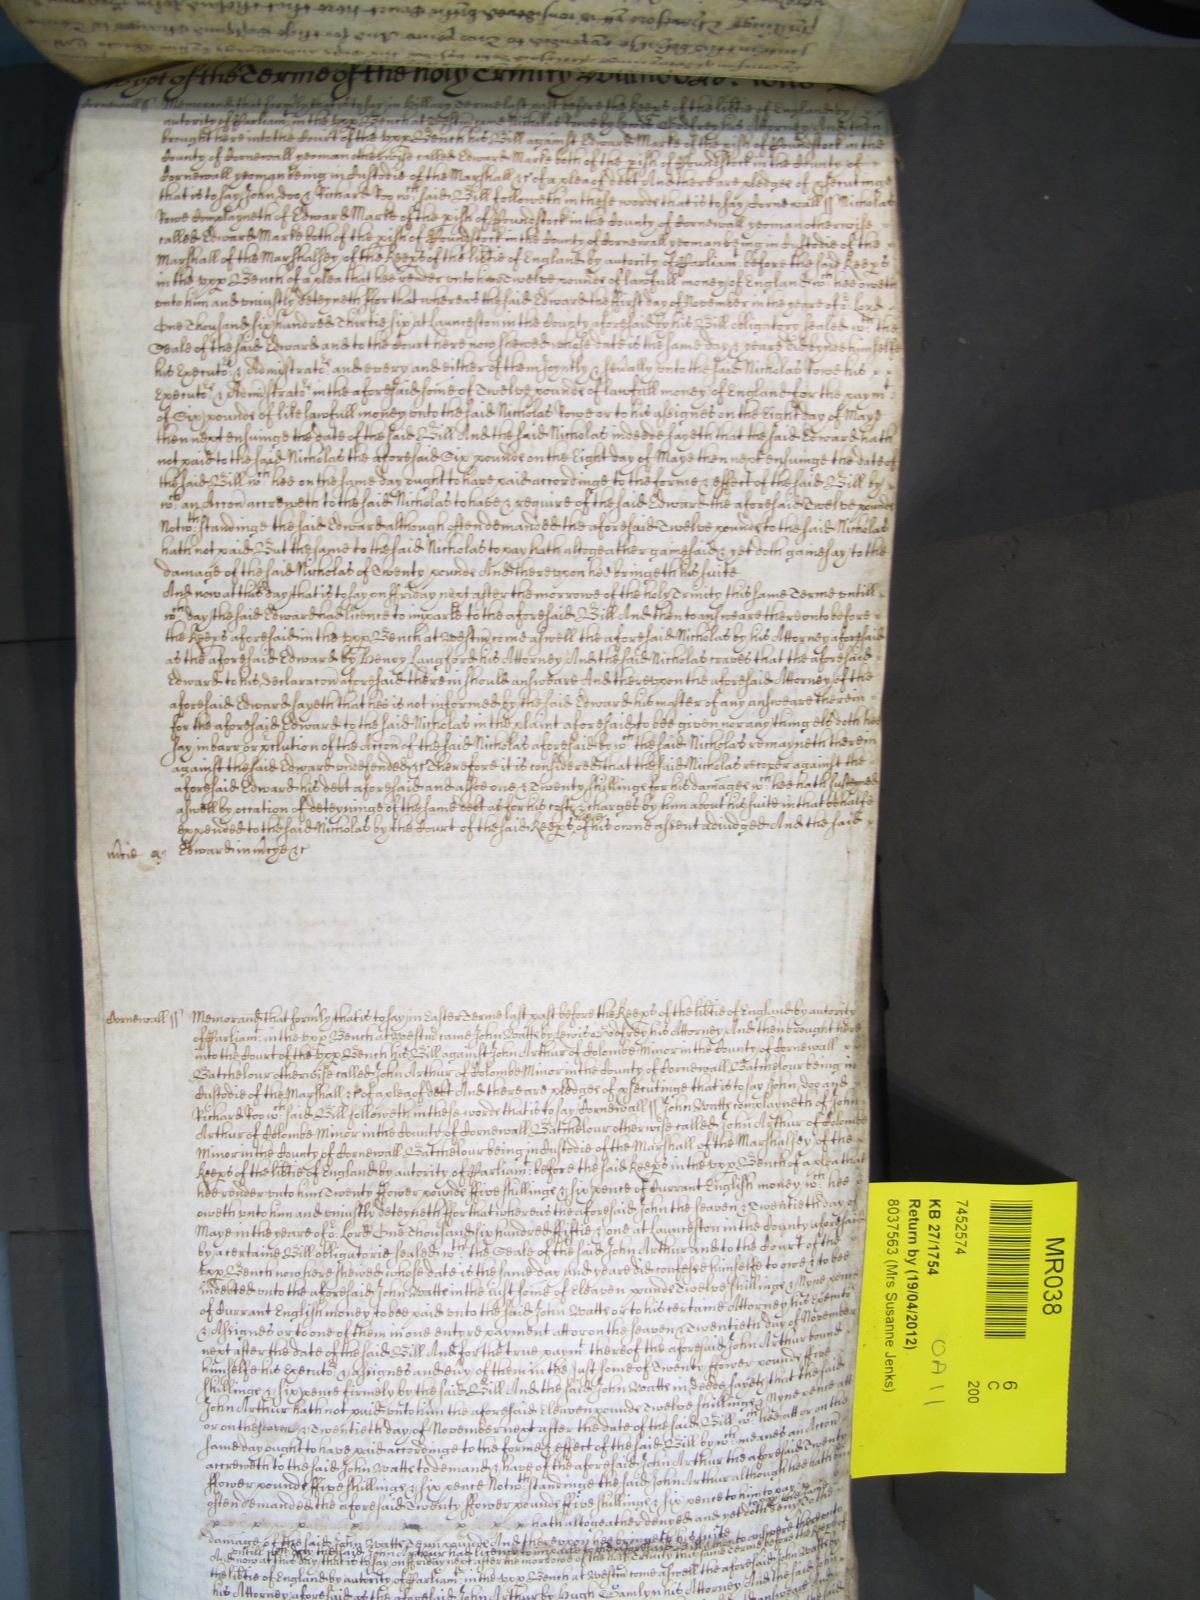 yet of the Terme of the holy Trinity
Cornewall ss Memorand that formly that is to say in Hillary Terme last past before the Keeps of the libtie of England by
autority of Parliam: in the vpp Bench at Westm came Nicholas Towe by Lewis Godfrey his Attorney And then
brought here into the Court of the vpp Bench his Bill against Edward Marke of the pish of Poundstock in the
County of Cornewall yeoman otherwise called Edward Marke both of the pish of Poundstock in the County of
Cornewall yeoman being in Custodie of the Marshall &c of a plea of debt And there are pledges of psecutinge
that is to say John Doo & Richard Roo wch said Bill followeth in these words that is to say Cornewall ss Nicholas
Towe Complayneth of Edward Marke of the pish of Poundstock in the County of Cornewall yeoman otherwise
called Edward Marke both of the pish of Poundstock in the County of Cornewall yeoman being in Custodie of the
Marshall of the Marshalsey of the Keeps of the libtie of England by autority of Parliam: before the said Keeps
in the vpp Bench of a plea that hee render vnto him Twelve pounds of lawfull money of England wch hee oweth
vnto him and vniustly deteyneth ffor that whereas the said Edward the ffirst day of November in the yeare of or Lord
One Thousand six hundred Thirtie six at Launceston in the County aforesaid by his Bill obligatory sealed wth the
Seale of the said Edward and to the Court here now shewed whose date is the same day & yeare did bynde himselfe
his Executors & Administrators and every and either of them ioyntly & seually vnto the said Nicholas Towe his
Executors & Administrators in the aforesaid some of Twelve pounds of lawfull money of England for the paymt
of Six pounds of like lawfull money vnto the said Nicholas Towe or to his assignes on the Eight day of Maye
then next ensuinge the date of the said Bill And the said Nicholas indeede sayeth that the said Edward hath
not paid to the said Nicholas the aforesaid Six pounds on the Eight day of Maye then next ensuinge the date of
the said Bill wch hee on the same day ought to have paid accordinge to the forme & effect of the said Bill by
wch an Accon accreweth to the said Nicholas to have & require of the said Edward the aforesaid Twelve pounds
Notwthstandinge the said Edward although often demanded the aforesaid Twelve pounds to the said Nicholas
hath not paid But the same to the said Nicholas to pay hath altogeather gainesaid & yet doth gainesay to the
damage of the said Nicholas of Twenty pounds And thereupon hee bringeth his suite
And now at this day that is to say on ffriday next after the morrowe of the holy Trinity this same Terme vntill
wch day the said Edward had licence to imparle to the aforesaid Bill And then to answeare therevnto before
the Keeps aforesaid in the vpp Bench at Westm come aswell the aforesaid Nicholas by his Attorney aforesaid
as the aforesaid Edward by Henry Langford his Attorney And the said Nicholas craves that the aforesaid
Edward to his declaracon aforesaid therein should answeare And therevpon the aforesaid Attorney of the
aforesaid Edward sayeth that hee is not informed by the said Edward his master of any answeare therein
for the aforesaid Edward to the said Nicholas in the plaint aforesaid to bee given nor any thing els doth hee
say in barr or pclution of the Accon of the said Nicholas aforesaid by wch the said Nicholas remayneth therein
against the said Edward vndefended &c Therefore it is considered that the said Nicholas recover against the
aforesaid Edward his debt aforesaid and alsoe one & Twenty shillings for his damages wch hee hath susteyned
aswell by occation of deteyninge of the same debt as for his costs & charges by him about his suite in that behalfe
expended to the said Nicholas by the Court of the said Keeps of his owne assent adiudged And the said
Edward in mcye &c
Cornewall ss Memorand that formly that is to say in Easter Terme last past before the Keeps of the libtie of England by autority
of Parliam: in the vpp Bench at Westm came John Watts by Lewis Godfrey his Attorney And then brought here
into the Court of the vpp Bench his Bill against John Arthur of Colombe Minor in the County of Cornewall
Batchelour otherwise called John Arthur of Colombe Minor in the County of Cornewall Batchelour being in
Custodie of the Marshall &c of a plea of debt And there are pledges of psecutinge that is to say John Doo and
Richard Roo wch said Bill followeth in these words that is to say Cornewall ss John Watts complayneth of John
Arthur of Colombe Minor in the County of Cornewall Batchelour otherwise called John Arthur of Colombe
Minor in the County of Cornewall Batchelour being in Custodie of the Marshall of the Marshalsey of the
Keeps of the libtie of England by autority of Parliam: before the said Keeps in the vpp Bench of a plea that
hee render vnto him Twenty ffower pounds ffive shillings & six pence of Currant English money wch hee
oweth vnto him and vniustly deteyneth ffor that whereas the aforesaid John the seaven & Twentieth day of
Maye in the yeare of or Lord One Thousand six hundred ffiftie & one at Launceston in the County aforesaid
by a certaine Bill obligatorie sealed wth the Seale of the said John Arthur and to the Court of the
vpp Bench now here shewed whose date is the same day and yeare did confesse himselfe to owe & to bee
indebted vnto the aforesaid John Watts in the iust some of Eleaven pounds Twelve shillings & Nyne pence
of Currant English money to bee paid vnto the said John Watts or to his certaine Attorney his Executors
& Assignes or to one of them in one entyre payment att or on the seaven & Twentieth day of November
next after the date of the said Bill And for the true paymt thereof the aforesaid John Arthur bound
himselfe his Executors & Assignes and evy of them in the iust some of Twenty ffower pounds ffive
shillings & six pence firmely by the said Bill And the said John Watts in deede sayeth that the said
John Arthur hath not paid vnto him the aforesaid Eleaven pounds Twelve shillings & Nyne pence att
or on the seaven & Twentieth day of November next after the date of the said Bill wch hee att or on the
same day ought to have paid accordinge to the forme & effect of the said Bill by wch meanes an Accon
accreweth to the said John Watts to demand & have of the aforesaid John Arthur the aforesaid Twenty
ffower pounds ffive shillings & six pence Notwthstandinge the said John Arthur although hee hath bin
often demanded the aforesaid Twenty ffower pounds ffive shillings & six pence to him to pay
hath altogeather denyed and yet doth deny to the
damage of the said John Watts Tenn pounds And therevpon hee bringeth his suite
And now at this day that is to say on ffriday next after the morrowe of the holy Trinity this same Terme before the Keeps of
the libtie of England by autority of Parliam: in the vpp Bench at Westm come aswell the aforesaid John Watts by
his Attorney aforesaid as the aforesaid John Arthur by Hugh Gamlyn his Attorney And the said John
MR038
6
C
200
7452574
KB 27/1754
Return by (19/04/2012)
8037563 (Mrs Susanne Jenks)